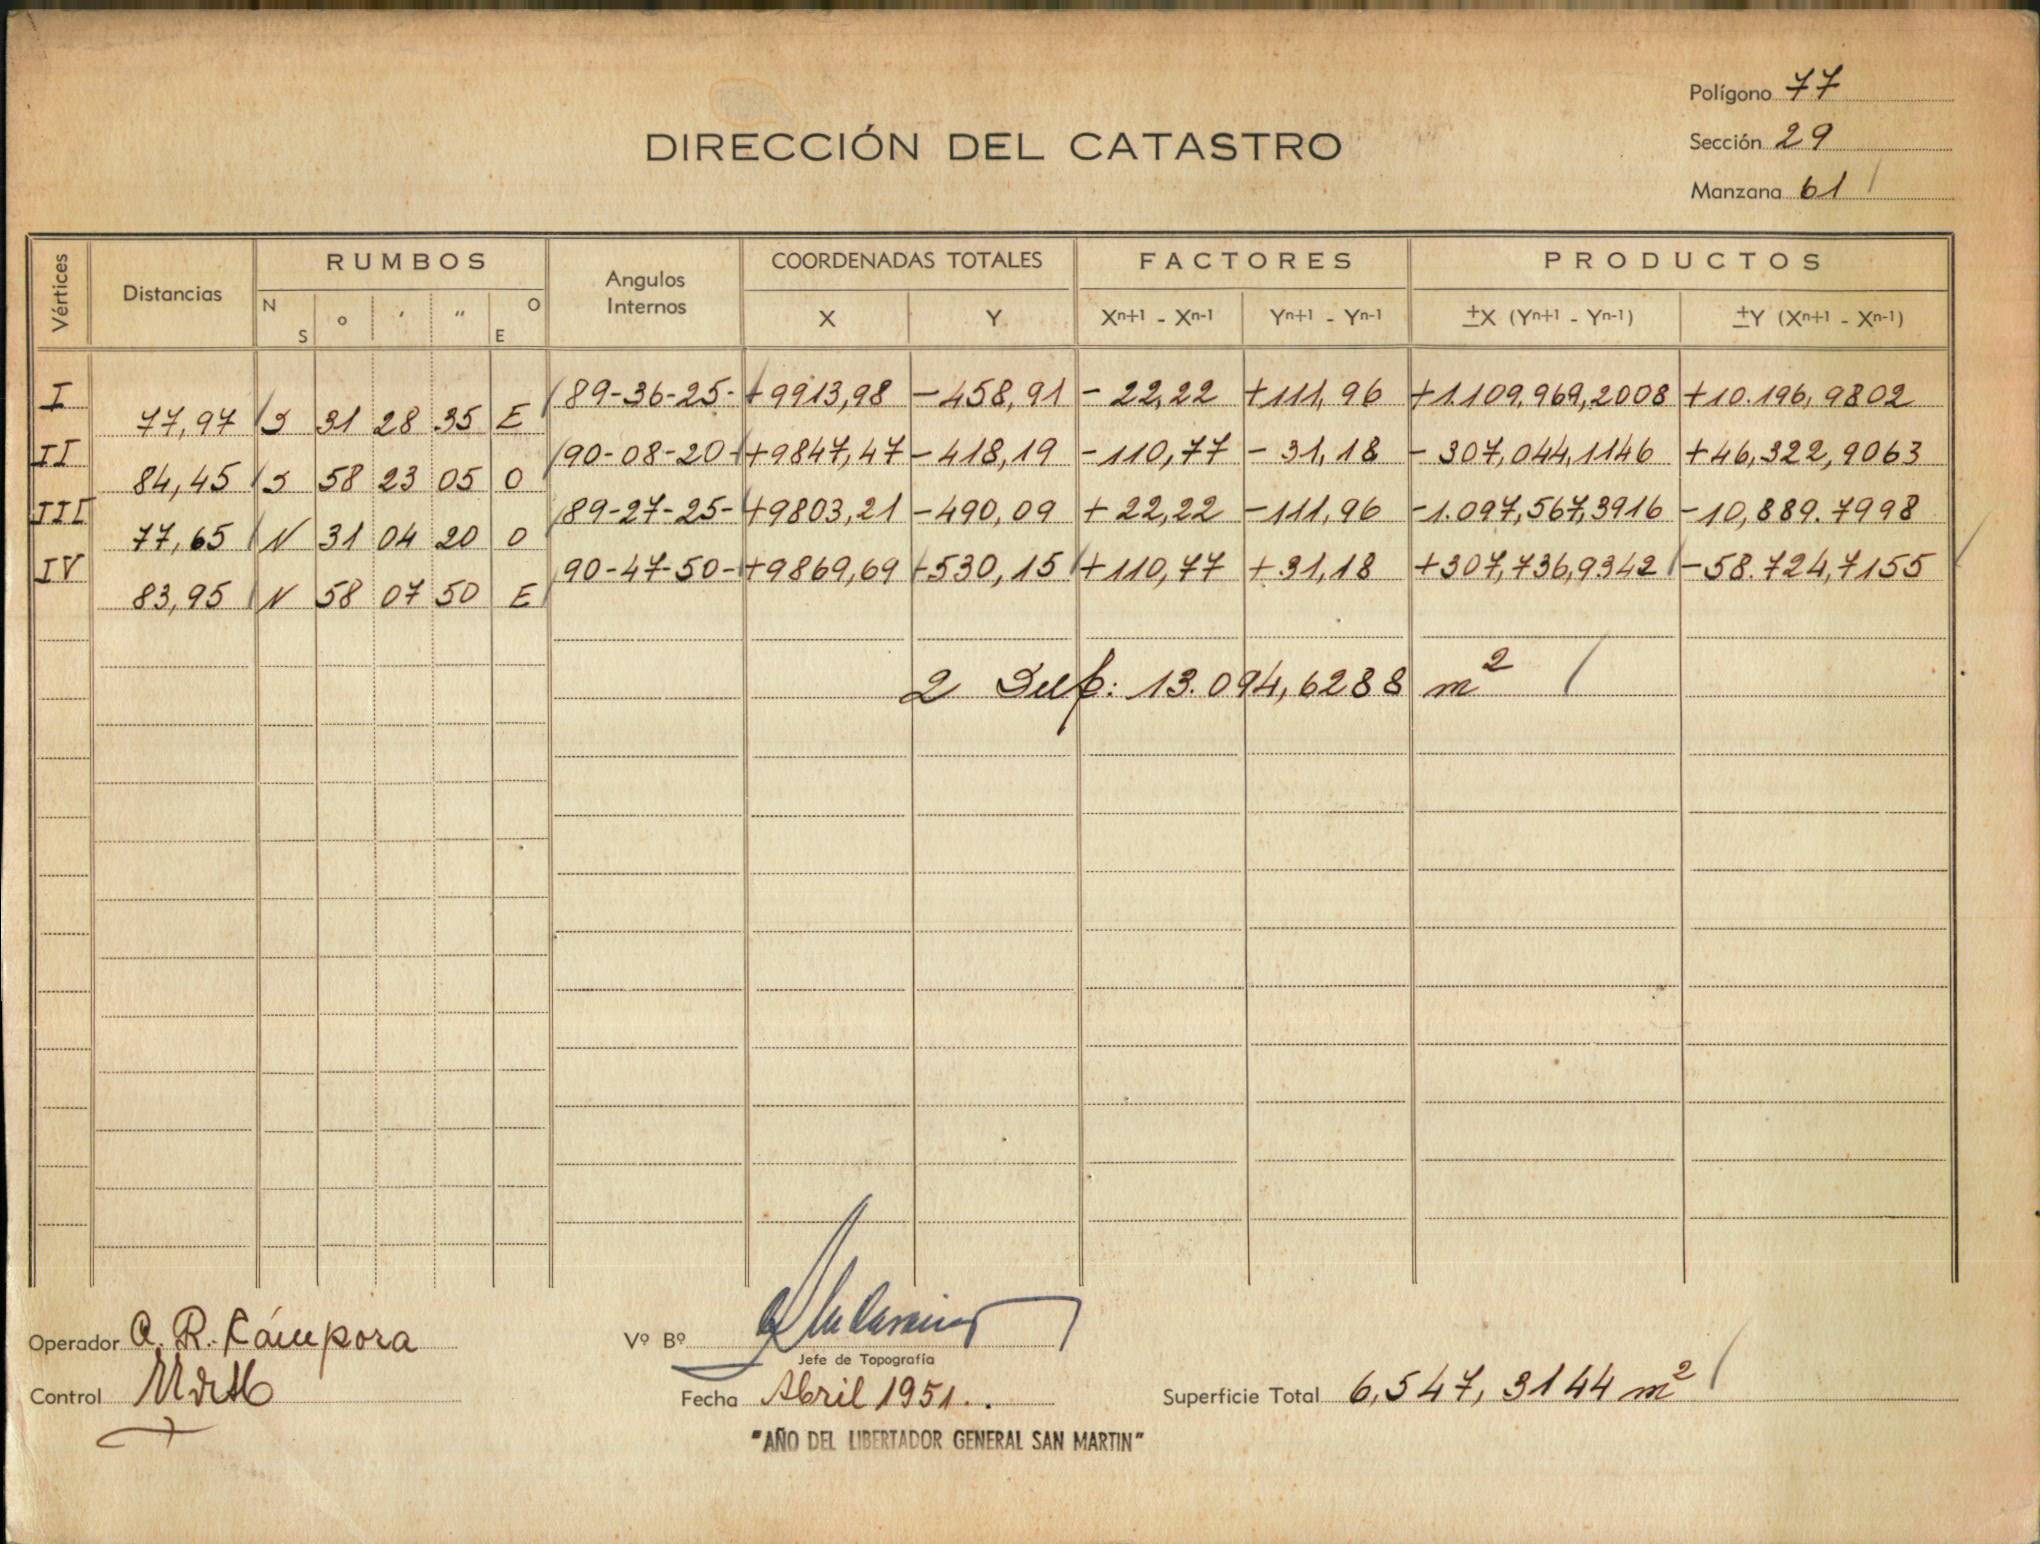 Polígono 77
DIRECCIÓN DEL CATASTRO
Sección 29
Manzana 61
Vértices Distancias RUMBOS Angulos Internos COORDENADAS TOTALES FACTORES PRODUCTOS
N S o ' " O E X Y Xn+1 - Xn-1 Yn+1 - Yn-1 ±X (Yn+1 - Yn-1) ±Y (Xn+1 - Xn-1)
I 89-36-25- +9913,98 -458,91 -22,22 +111,96 +1.109.969,2008 +10.196,9802
77,97 S 31 28 35 E
II 90-08-20- +9847,47 -418,19 -110,77 -31,18 -307,044,1146 +46,322,9063
84,45 S 58 23 05 O
III 89-27-25- +9803,21 -490,09 +22,22 -111,96 -1.097,567,3916 -10,889.7998
77,65 N 31 04 20 O
IV 90-47-50- +9869,69 -530,15 +110,77 +31,18 +307,736,9342 -58.724,7155
83,95 N 58 07 50 E
2 Sup: 13.094,6288 m2
Operador A. R. Cámpora
Vº Bº
Jefe de Topografía
Control
Fecha Abril 1951..
Superficie Total 6,547,3144 m2
"AÑO DEL LIBERTADOR GENERAL SAN MARTIN"